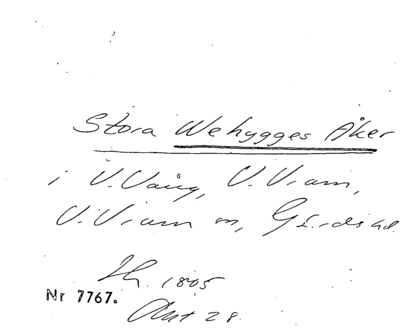 Stora Wehygges Åker
i V. Vång, V. Vram,
V. Vram sn, Gärds hd.
Th. 1805
Nr 7767.
Akt 28